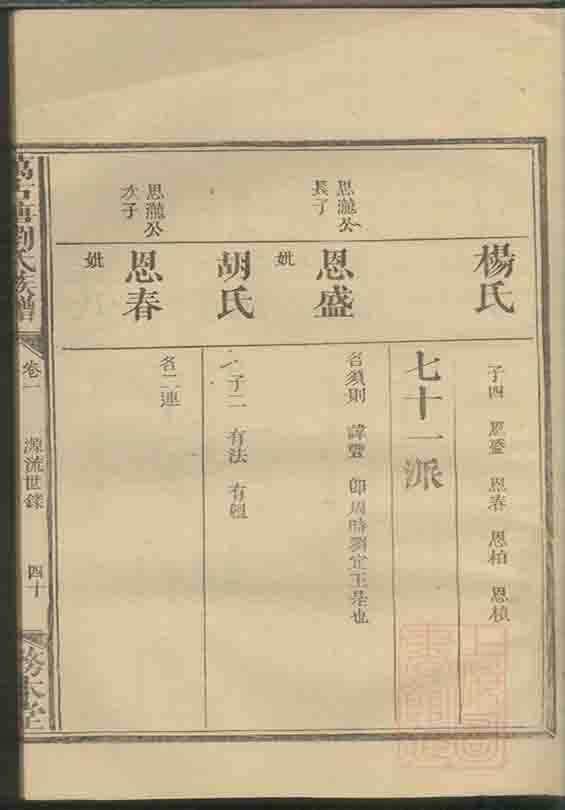 楊氏
子四 恩盛 恩春 恩柏 恩楨
七十一派
恩瀧公
長子
恩盛
名須則 諱豐 卽周時劉定王是也
妣
胡氏
子二 有法 有
恩瀧公
次子
恩春
名二連
妣
劉氏族譜
卷一
源流世錄
四十
務本堂